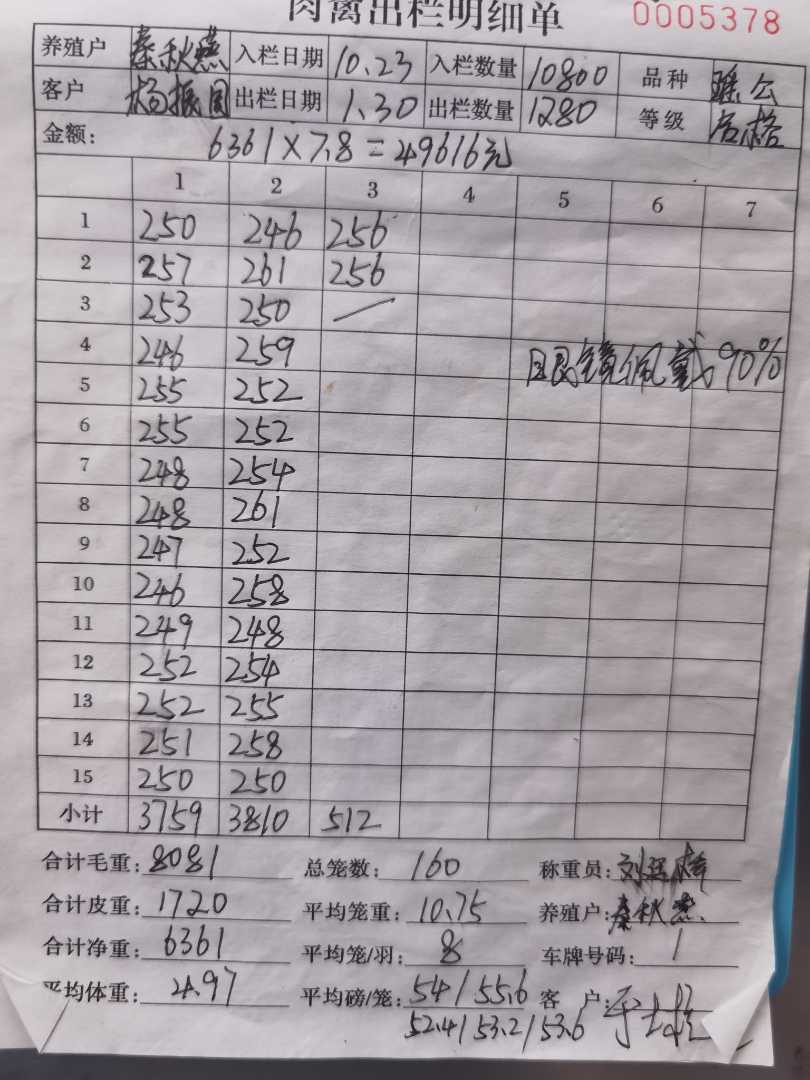 肉禽出栏明细单 0005378
养殖户 秦秋燕 入栏日期 10.23 入栏数量 10800 品种
客户 杨振国 出栏日期 1.30 出栏数量 1280 等级 合格
金额: 6361×7.8=49616元
1 2 3 4 5 6 7
1 250 246 256
2 257 261 256
3 253 250 /
4 246 259 眼镜佩戴90%
5 255 252
6 255 252
7 248 254
8 248 261
9 247 252
10 246 258
11 249 248
12 252 254
13 252 255
14 251 258
15 250 250
小计 3759 3810 512
合计毛重: 8081 总笼数: 160 称重员:
合计皮重: 1720 平均笼重: 10.75 养殖户: 秦秋燕
合计净重: 6361 平均笼/羽: 8 车牌号码: /
平均体重: 4.97 平均磅/笼: 54/55.6 客 户:
52.4/53.2/53.6